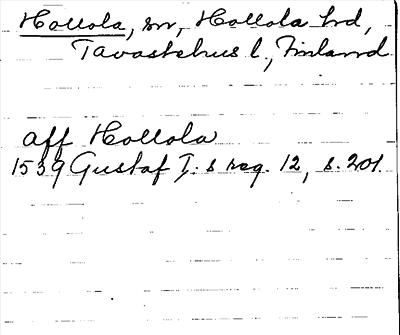 Hollola, sn, Hollola hd,
Tavastehus l., Finland
aff Hollola
1539 Gustaf I:s reg. 12, s. 201.